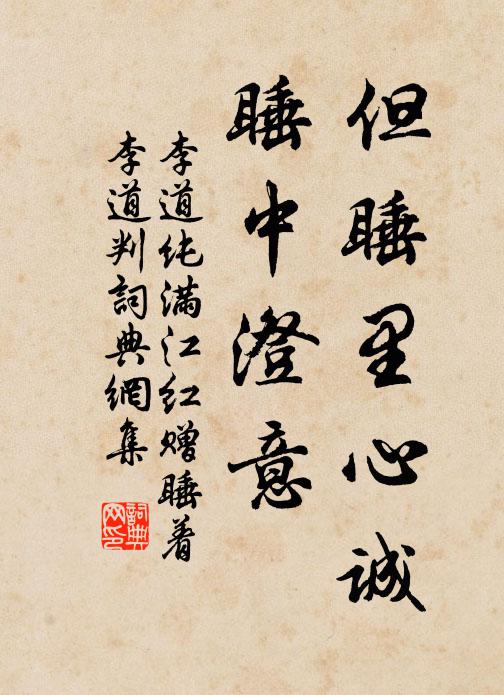 但睡里心诚
睡中澄意
李道纯满江红赠睡着
李道判詞典網集
詞典网印